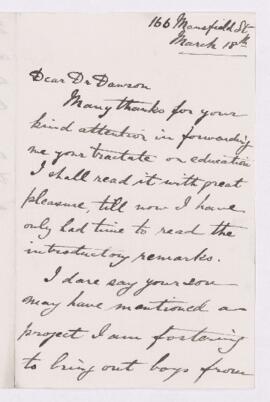 166 Mansfield St.
March 18th
Dear Dr Dawson
Many thanks for your
kind attention in forwarding
me your tractate on education
I shall read it with great
pleasure, till now I have
only had time to read the
introductory remarks.
I dare say your son
may have mentioned a
project I am fostering
to bring out boys from